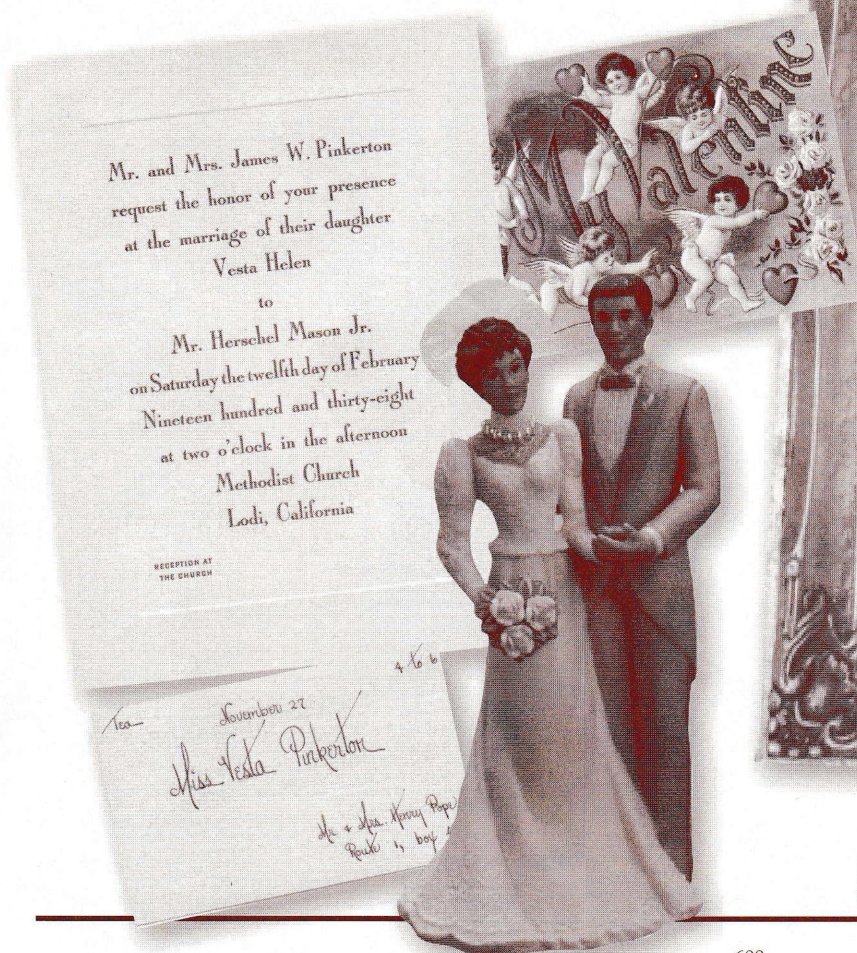 Mr. and Mrs. James W. Pinkerton
request the honor of your presence
at the marriage of their daughter
Vesta Helen
to
Mr. Herschel Mason Jr.
on Saturday the twelfth day of February
Nineteen hundred and thirty-eight
at two o'clock in the afternoon
Methodist Church
Lodi, California
RECEPTION AT
THE CHURCH
My Valentine
Tea
4 to 6
November 27
Miss Vesta Pinkerton
Mr & Mrs. Henry Pope
Route 1, box